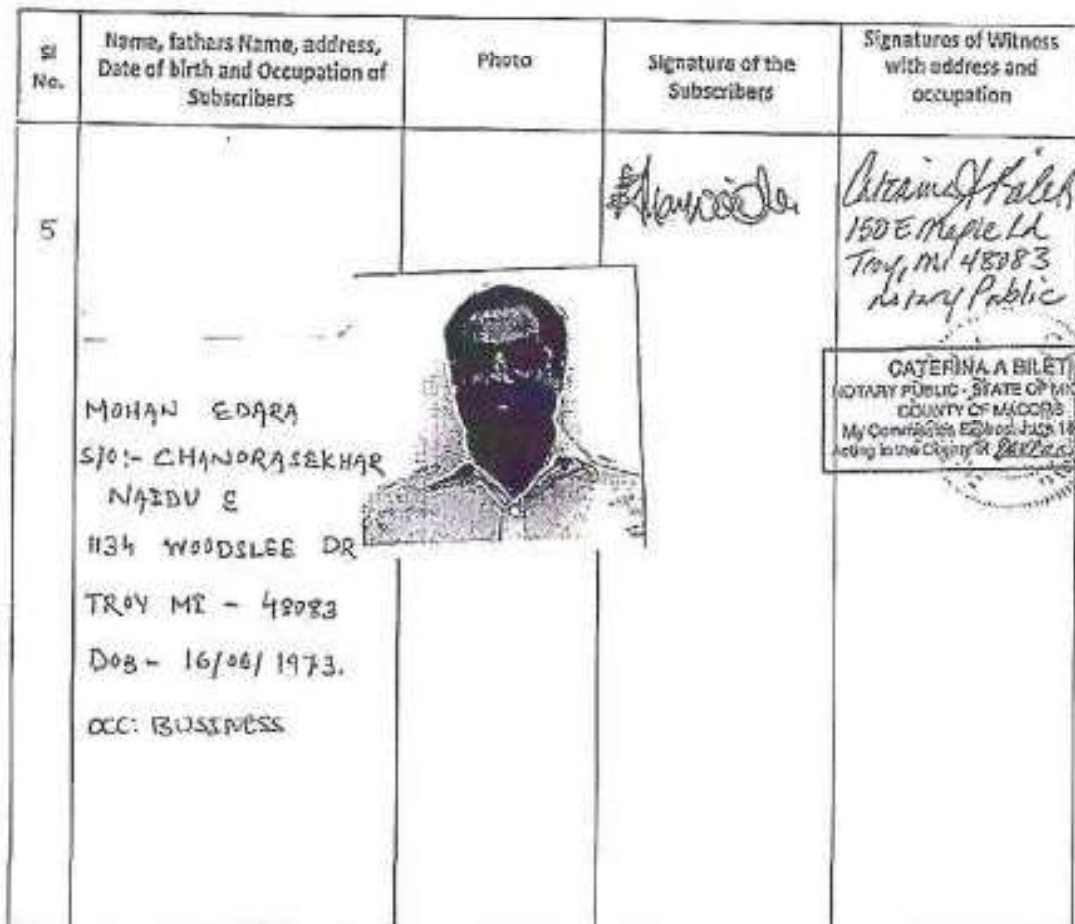 Sl
No.
Name, fathers Name, address,
Date of birth and Occupation of
Subscribers
Photo
Signature of the
Subscribers
Signatures of Witness
with address and
occupation
5
MOHAN EDARA
S/O:- CHANDRASEKHAR
NAIDU E
1134 WOODSLEE DR
TROY MI - 48083
DOB - 16/06/1973.
OCC: BUSINESS
150 E Maple Rd
Troy, MI 48083
Notary Public
CATERINA A BILET
NOTARY PUBLIC - STATE OF MIC
COUNTY OF MACOMB
My Commission Expires June 18
Acting in the County of